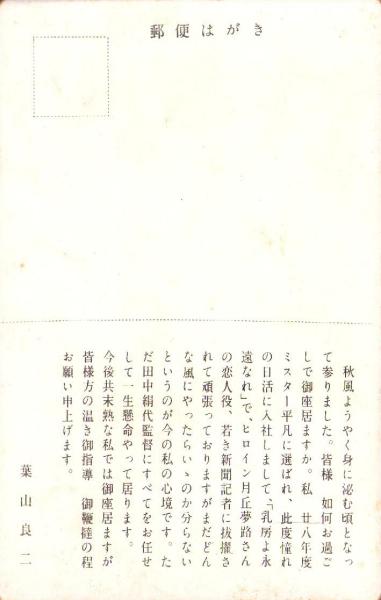 郵便はがき
秋風ようやく身に泌む頃となっ
て参りました。皆様　如何お過ご
しで御座居ますか。私　廿八年度
ミスター平凡に選ばれ、此度憧れ
の日活に入社しまして、「乳房よ永
遠なれ」で、ヒロイン月丘夢路さん
の恋人役、若き新聞記者に抜擢さ
れて頑張っておりますがまだどん
な風にやったらいゝのか分らない
というのが今の私の心境です。た
だ田中絹代監督にすべてをお任せ
して一生懸命やって居ります。
今後共未熟な私では御座居ますが
皆様方の温き御指導　御鞭撻の程
お願い申上げます。
葉山良二